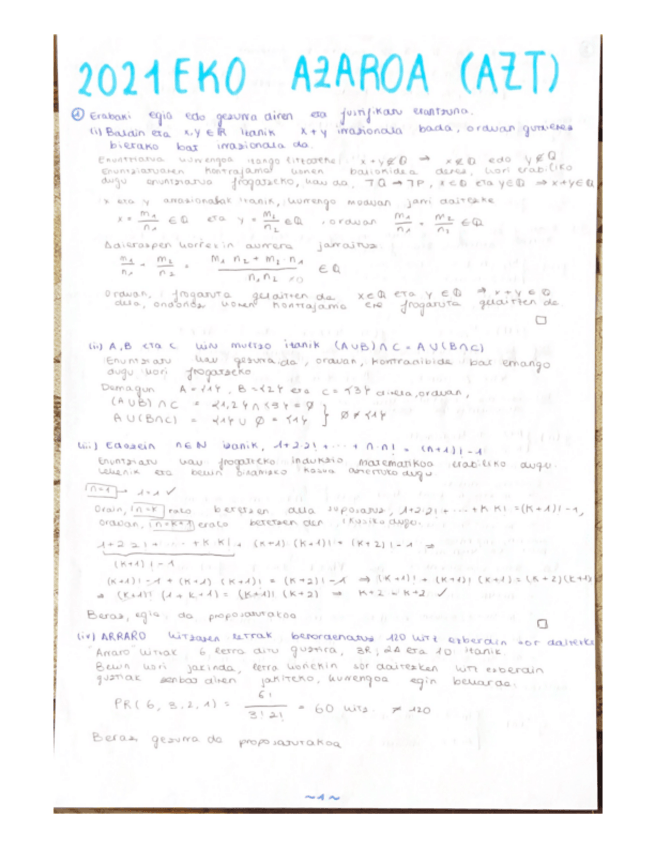 2021EKO AZAROA (AZT)
① Erabaki egia edo gezurra diren eta justifikatu erantzuna.
(i) Baldin eta x,y ∈ ℝ izanik x+y irrazionala bada, orduan gutxienez
bietako bat irrazionala da.
Enuntziatua hurrengoa izango litzateke: x+y∉ℚ ⇒ x∉ℚ edo y∉ℚ
enuntziatuaren kontrajarria honen baliokidea denez, hori erabiliko
dugu enuntziatua frogatzeko, hau da, ¬Q → ¬P, x∈ℚ eta y∈ℚ ⇒ x+y∈ℚ
x eta y arrazionalak izanik, hurrengo moduan jarri daitezke
x = m₁/n₁ ∈ ℚ eta y = m₂/n₂ ∈ ℚ, orduan m₁/n₁ + m₂/n₂ ∈ ℚ
Adierazpen horrekin aurrera jarraituz
m₁/n₁ + m₂/n₂ = (m₁ n₂ + m₂ n₁)/(n₁n₂ ≠0) ∈ ℚ
Orduan, frogatuta gelditzen da x∈ℚ eta y∈ℚ ⇒ x+y∈ℚ
dela, ondorioz honen kontrajarria ere frogatuta gelditzen da
□
(ii) A, B eta C hiru multzo izanik (A∪B)∩C = A∪(B∩C)
Enuntziatu hau gezurra da, orduan, kontradibide bat emango
dugu hori frogatzeko
Demagun A={1}, B={2} eta C={3} direla, orduan,
(A∪B)∩C = {1,2}∩{3} = ∅
A∪(B∩C) = {1}∪∅ = {1} } ∅≠{1}
(iii) Edozein n∈ℕ izanik, 1+2·2!+···+n·n! = (n+1)!-1
Enuntziatu hau frogatzeko indukzio matematikoa erabiliko dugu.
Lehenik eta behin oinarrizko kasua aztertuko dugu
n=1 → 1=1 ✓
Orain, n=k rako betetzen dela suposatuz, 1+2·2!+···+k·k! =(k+1)!-1,
orduan, n=k+1 erako betetzen den ikusiko dugu.
1+2·2!+···+k·k! + (k+1)·(k+1)! = (k+2)!-1 ⇒
(k+1)!-1
(k+1)!-1 + (k+1)(k+1)! = (k+2)!-1 ⇒ (k+1)! + (k+1)! (k+1) = (k+2)(k+1)!
⇒ (k+1)! (1+k+1) = (k+1)! (k+2) ⇒ k+2 = k+2 ✓
Beraz, egia da proposaturakoa
□
(iv) ARRARO hitzaren letrak berordenatuz 120 hitz ezberdin sor daitezke
Arraro hitzak 6 letra ditu guztira, 3R, 2A eta 1O izanik.
Behin hori jakinda, letra horiekin sor daitezkeen hitz ezberdin
guztiak zenbat diren jakiteko, hurrengoa egin beharda.
PR(6, 3,2,1) = 6!/(3!2!) = 60 hitz ≠ 120
Beraz gezurra da proposaturakoa
~1~